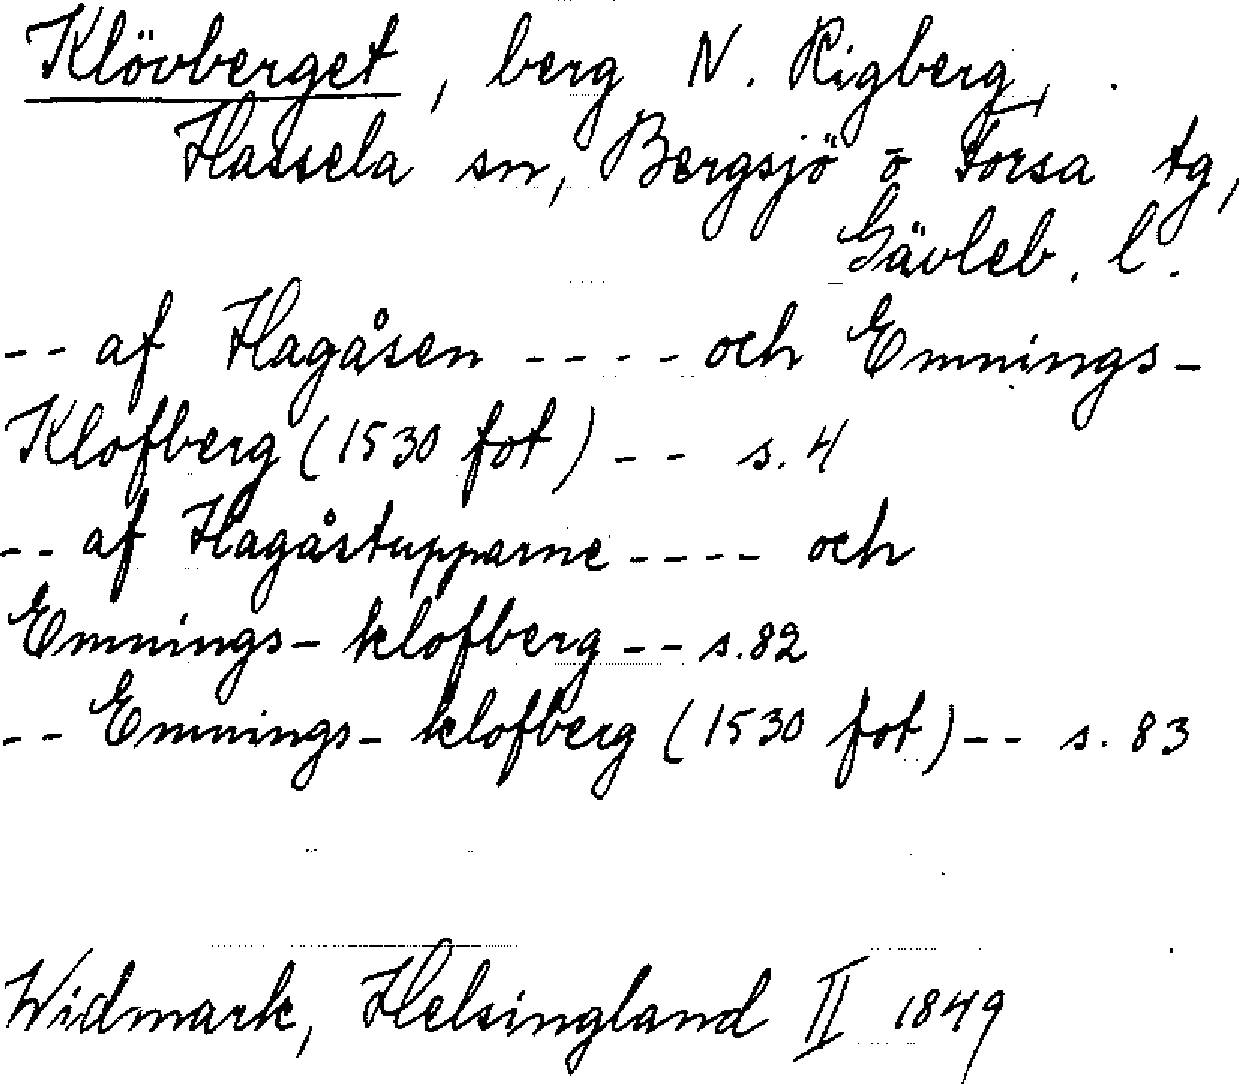 Klövberget, berg N. Rigberg,
Hassela sn, Bergsjö o Forsa tg,
Gävleb. l.
-- af Hagåsen ---- och Emnings-
Klofberg (1530 fot) -- s. 4
-- af Hagåstupparne ---- och
Emnings-klofberg -- s. 82
-- Emnings-klofberg (1530 fot) -- s. 83
Widmark, Helsingland II 1849